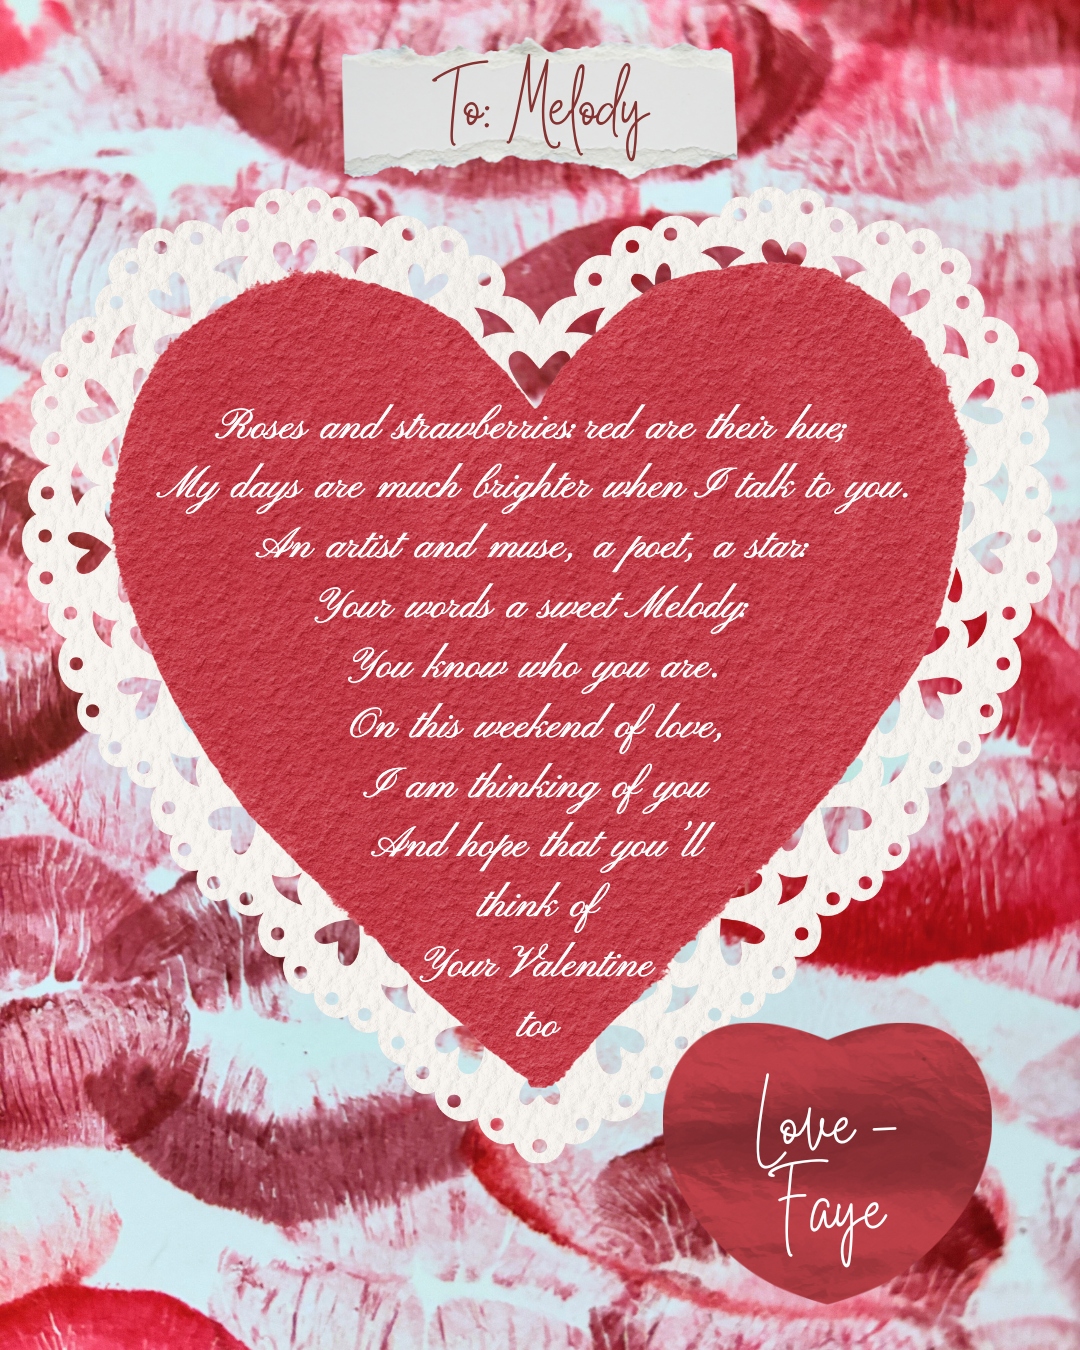 To: Melody
Roses and strawberries: red are their hue;
My days are much brighter when I talk to you.
An artist and muse, a poet, a star:
Your words a sweet Melody:
You know who you are.
On this weekend of love,
I am thinking of you
And hope that you'll
think of
Your Valentine
too
Love -
Faye